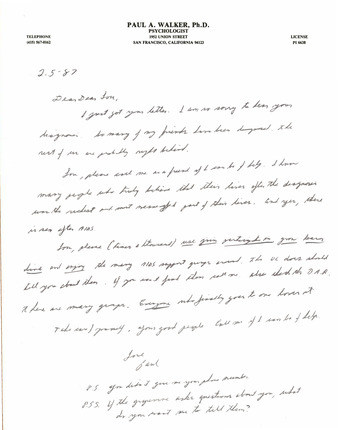 PAUL A. WALKER, Ph.D.
PSYCHOLOGIST
TELEPHONE 1952 UNION STREET LICENSE
(415) 567-0162 SAN FRANCISCO, CALIFORNIA 94123 PI 6630
2-5-87
Dear Dear Lou,
I just got your letter. I am so sorry to hear your
diagnosis. So many of my friends have been diagnosed & the
rest of us are probably right behind.
Lou, please call me as a friend if I can be of help. I know
many people who truly believe that their lives after the diagnosis
was the richest and most meaningful part of their lives. And yes, there
is sex after AIDS
Lou, please (I have a thousand) use your psychologist
and enjoy the many AIDS support groups around. The UC docs should
tell you about them. If you can't find them call me. Also check the
there are many groups. Everyone who finally goes to one loves it
Take care of yourself. Your good people. Call me if I can be of help.
Love
Paul
P.S. You didn't give me your phone number.
PSS. If the asks questions about you, what
do you want me to tell them?